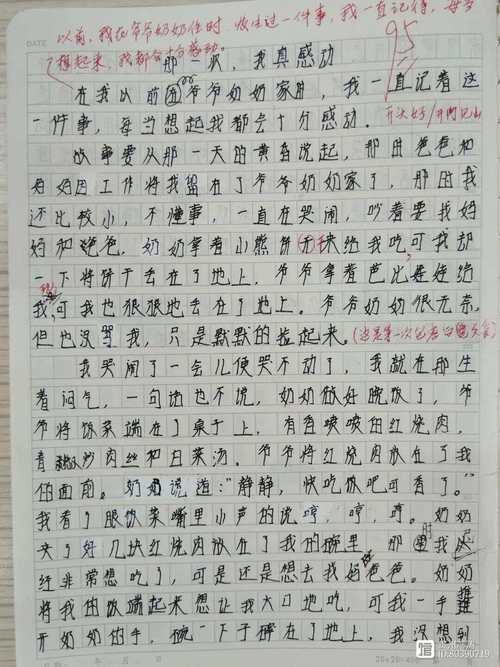 以前，我在爷爷奶奶住时，发生过一件事，我一直记得，每当
想起来，我都会十分感动。
95
DATE
那一次，我真感动
在我以前回爷爷奶奶家时，我一直记着这
一件事，每当想起我都会十分感动。
开头好/开门见山
故事要从那一天的黄昏说起，那时爸爸和
妈妈因工作将我留在了爷爷奶奶家了，那时我
还比较小，不懂事，一直在哭闹，吵着要找妈
妈和爸爸。奶奶拿着小熊饼干来给我吃可我却
一下将饼干丢在了地上。爷爷拿着芭比娃娃给
我，可我也狠狠地丢在了地上。爷爷奶奶很无奈，
但也没骂我，只是默默的捡起来。
我哭闹了一会儿便哭不动了，我就在那生
着闷气，一句话也不说，奶奶做好晚饭了，爷
爷将饭菜端在了桌子上，有香喷喷的红烧肉，
青椒炒肉丝和白菜汤。爷爷将红烧肉放在了我
的面前。奶奶说道：“静静，快吃饭吧可香了。”
我看了眼饭菜嘴里小声的说哼，哼，哼。奶奶
夹了好几块红烧肉放在了我的碗里，那时我已
经非常想吃了，可是还是想去找妈爸爸。奶奶
将我的饭端起来想让我大口地吃，可我一手推
开奶奶的手，碗一下子碎在了地上，我没想到
20×20=400
ID:80390719